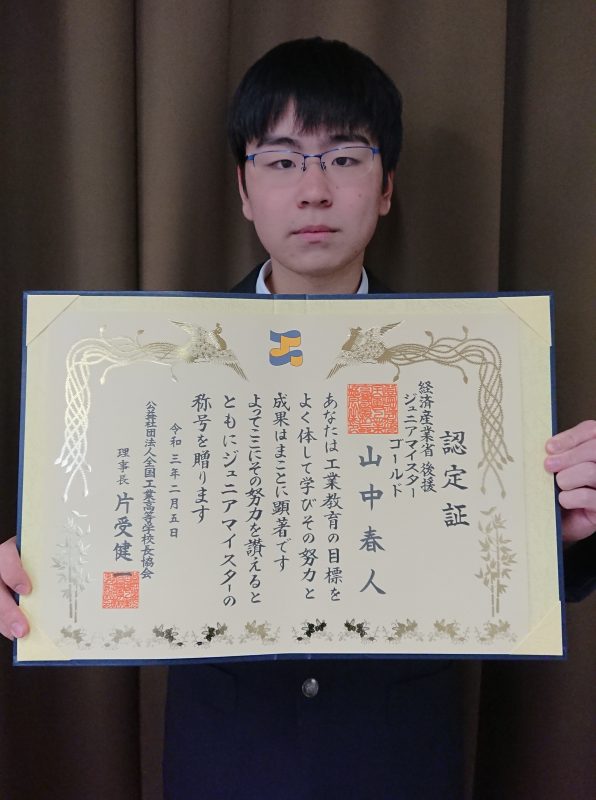 認定証
経済産業省 後援
ジュニアマイスター
ゴールド
山中春人
あなたは工業教育の目標を
よく体して学びその努力と
成果はまことに顕著です
よってここにその努力を讃えると
ともにジュニアマイスターの
称号を贈ります
令和三年二月五日
公益社団法人全国工業高等学校長協会
理事長 片受健一